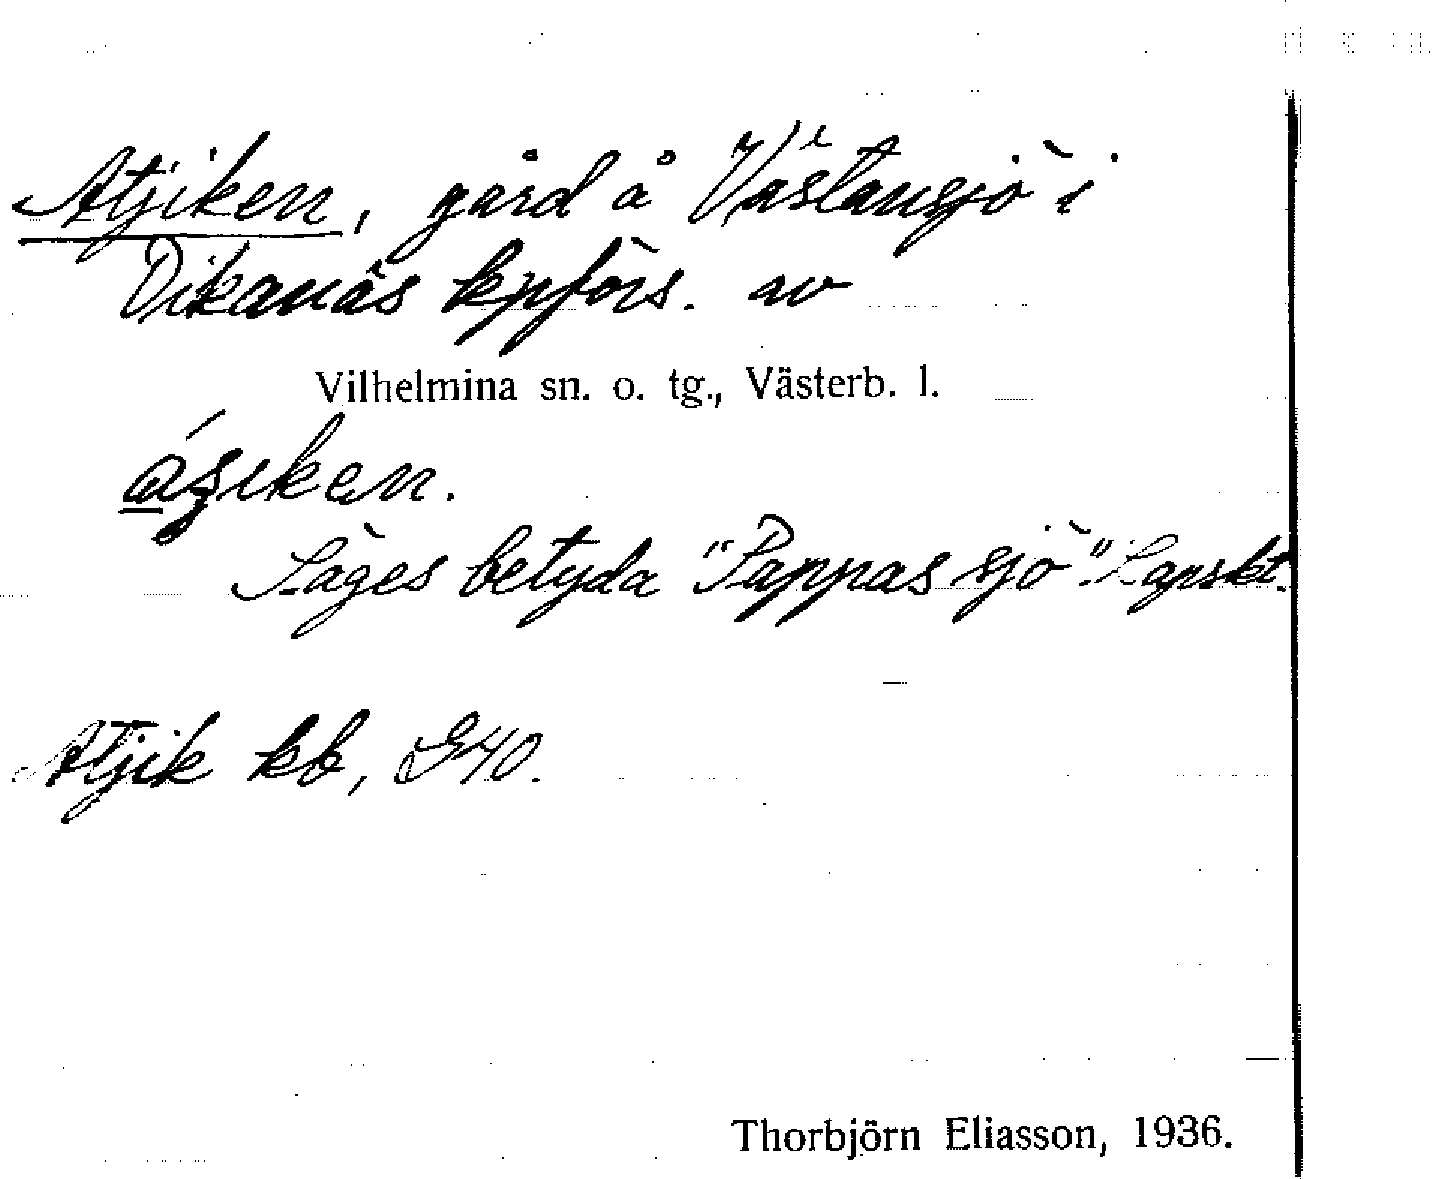 Atjiken, gård å Västansjö i
Dikanäs kpförs. av
Vilhelmina sn. o. tg., Västerb. l.
Säges betyda "Pappas sjö". Lapskt.
Atjik kb, G40.
Thorbjörn Eliasson, 1936.